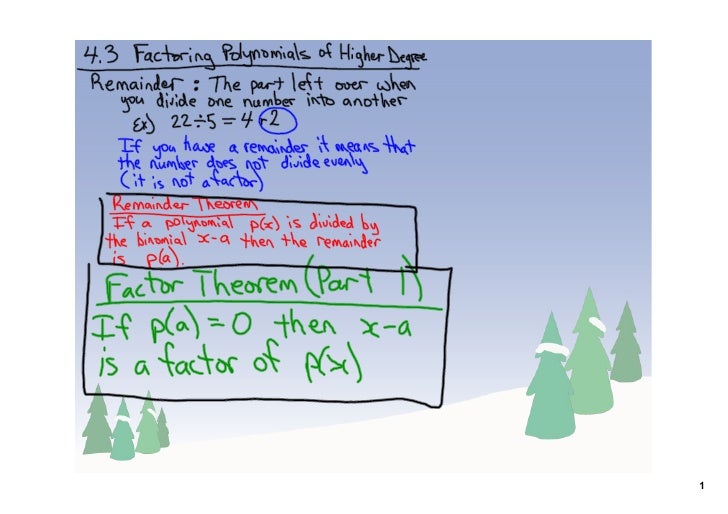 4.3 Factoring Polynomials of Higher Degree
Remainder : The part left over when
you divide one number into another
Ex) 22÷5 = 4 r 2
If you have a remainder it means that
the number does not divide evenly
(it is not a factor)
Remainder Theorem
If a polynomial p(x) is divided by
the binomial x-a then the remainder
is p(a).
Factor Theorem (Part 1)
If p(a) = 0 then x-a
is a factor of p(x)
1